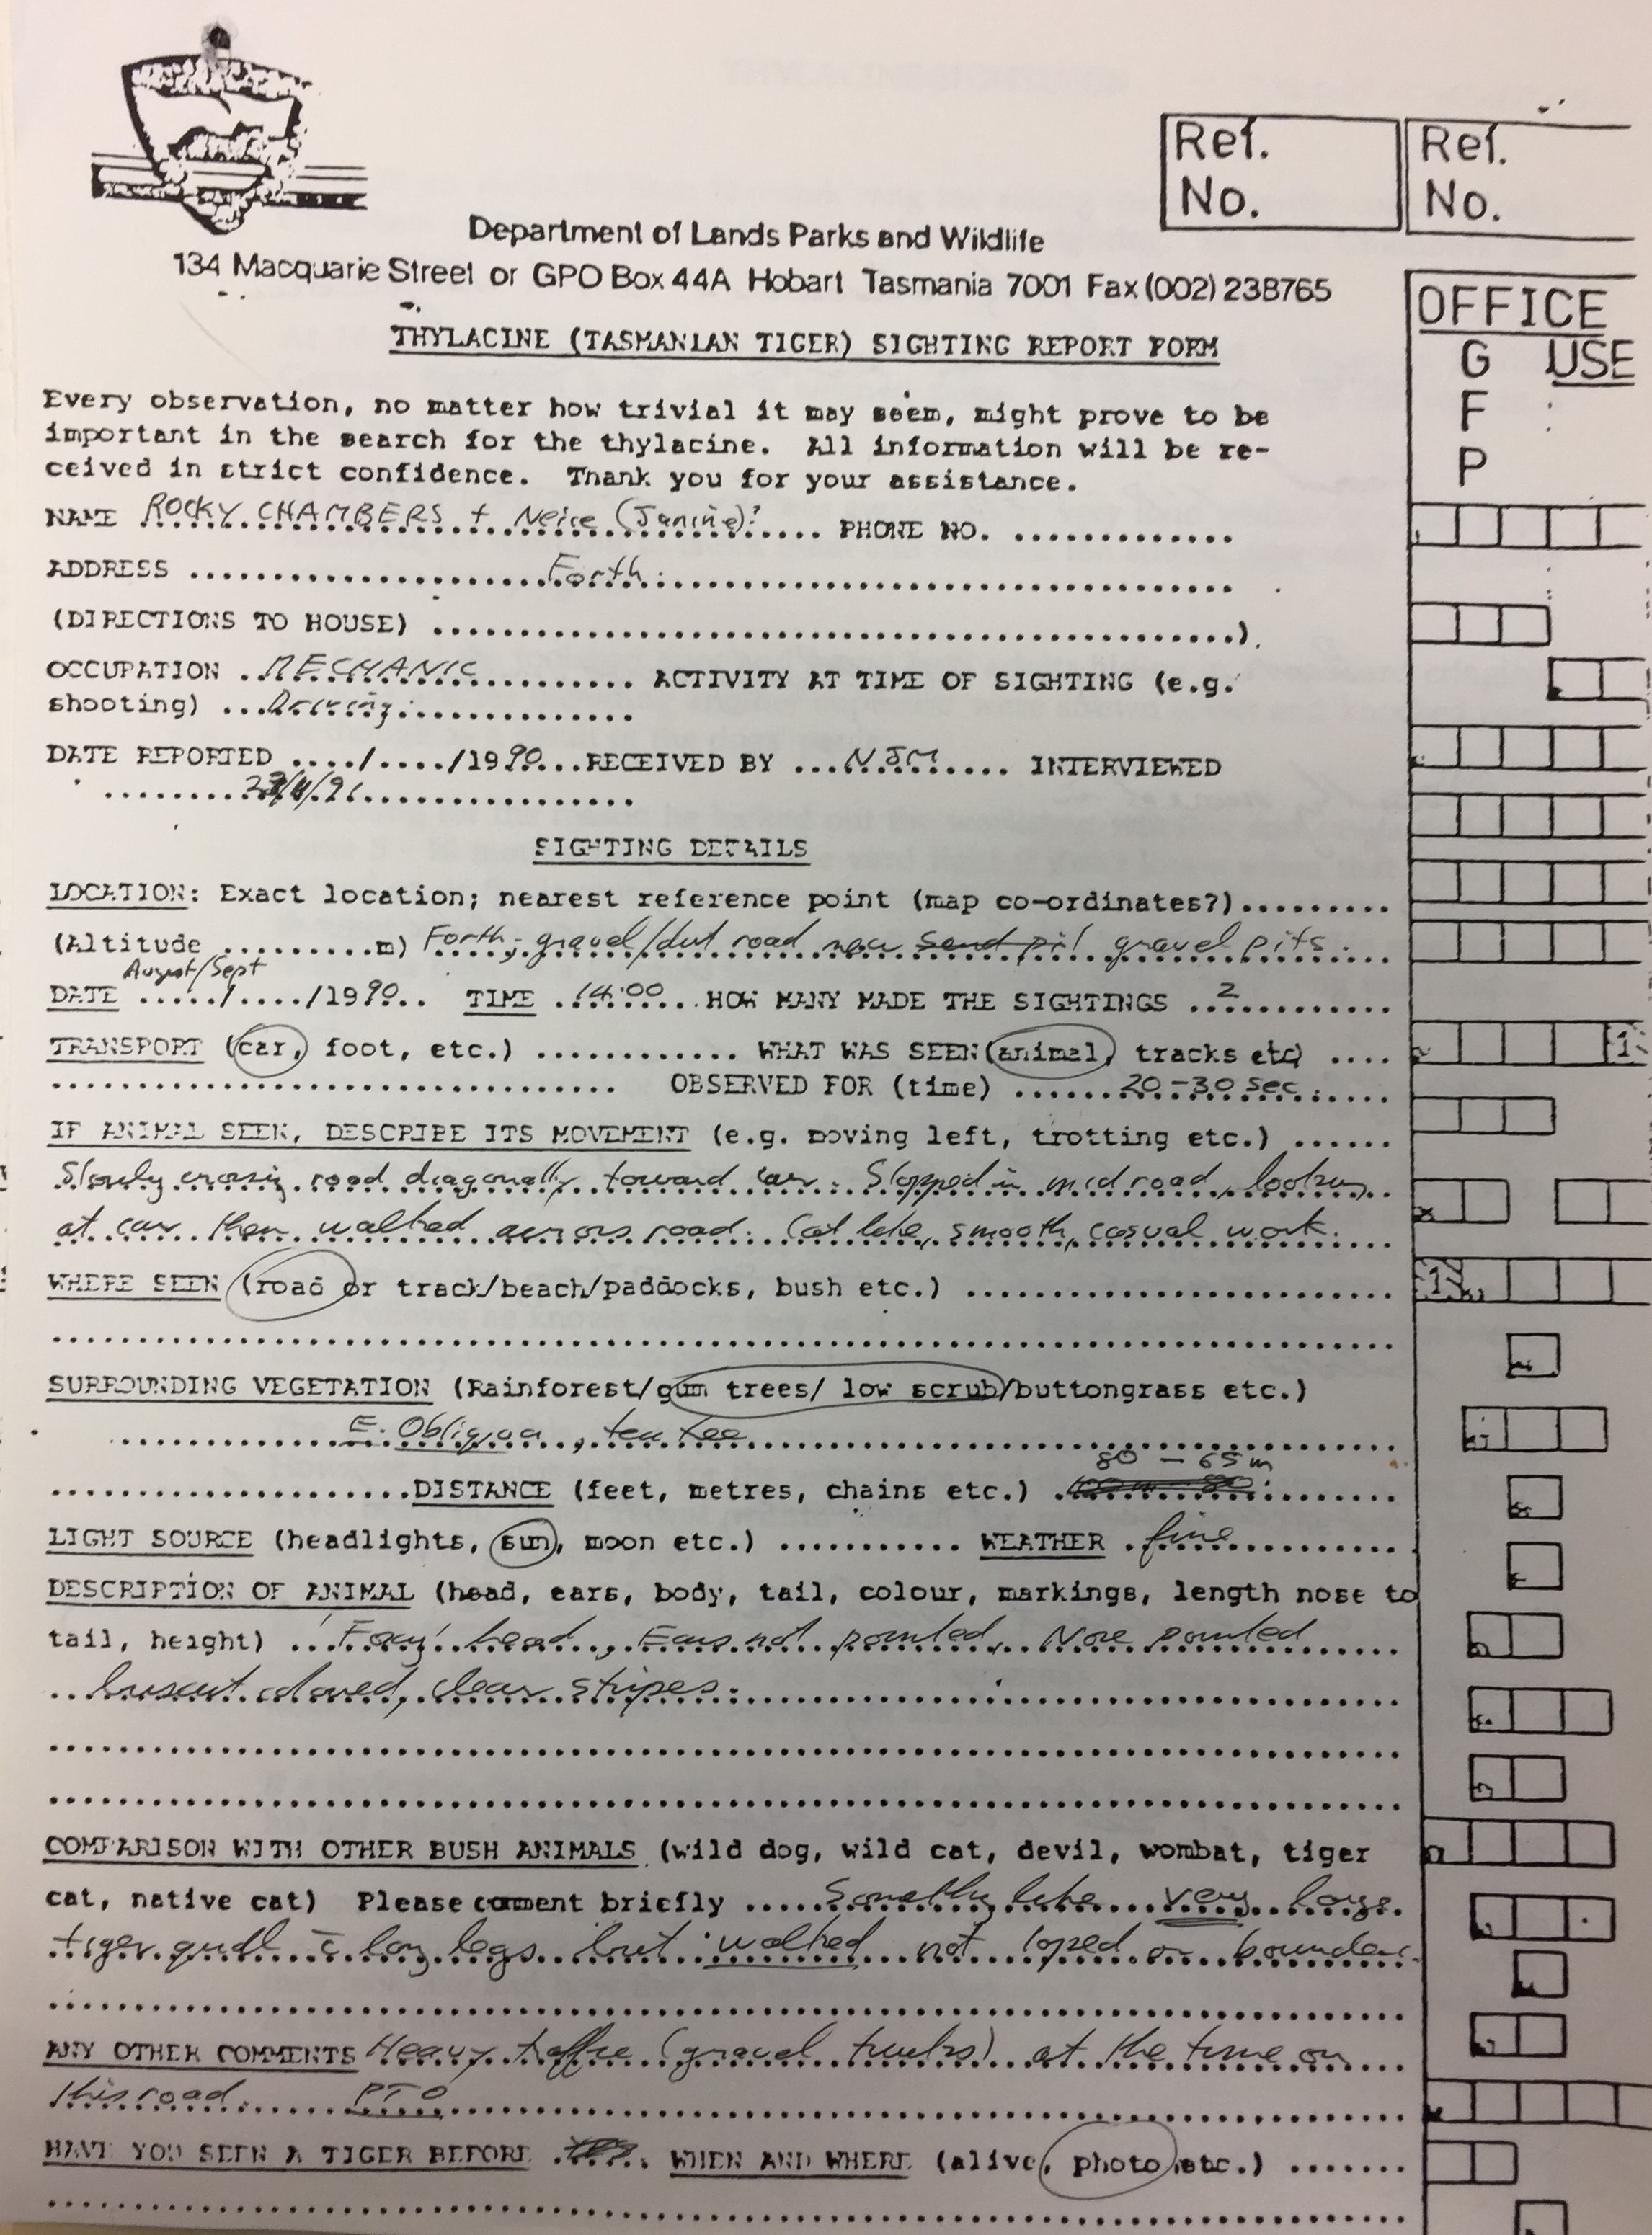 Ref.
No.
Ref.
No.
Department of Lands Parks and Wildlife
134 Macquarie Street or GPO Box 44A Hobart Tasmania 7001 Fax (002) 238765
OFFICE
USE
G
F
P
THYLACINE (TASMANIAN TIGER) SIGHTING REPORT FORM
Every observation, no matter how trivial it may seem, might prove to be
important in the search for the thylacine. All information will be re-
ceived in strict confidence. Thank you for your assistance.
NAME ROCKY CHAMBERS + Neice (Janine)? PHONE NO. ............
ADDRESS .......... Forth ..........
(DIRECTIONS TO HOUSE) ....................).
OCCUPATION ..MECHANIC.......... ACTIVITY AT TIME OF SIGHTING (e.g.
shooting) ...Driving...............
DATE REPORTED ..../..../1990...RECEIVED BY ...NJM...... INTERVIEWED
SIGHTING DETAILS
LOCATION: Exact location; nearest reference point (map co-ordinates?).........
(Altitude ..........m) Forth; gravel/dirt road near gravel pits.
August/Sept
DATE ...../..../1990.. TIME ..14:00... HOW MANY MADE THE SIGHTINGS ..2..........
TRANSPORT (car, foot, etc.) ............ WHAT WAS SEEN (animal, tracks etc) ....
.............................. OBSERVED FOR (time) ......20-30 sec......
IF ANIMAL SEEN, DESCRIBE ITS MOVEMENT (e.g. moving left, trotting etc.) ......
Slowly crossing road diagonally toward car. Stopped in mid road, looking
at car then walked across road. Cat like, smooth, casual work.
WHERE SEEN (road or track/beach/paddocks, bush etc.) .........................
1
1
SURROUNDING VEGETATION (Rainforest/gum trees/ low scrub/buttongrass etc.)
E. Obliqua, tea tree
80 - 65 m
....................DISTANCE (feet, metres, chains etc.) ....................
LIGHT SOURCE (headlights, sun, moon etc.) ........... WEATHER .fine...........
DESCRIPTION OF ANIMAL (head, ears, body, tail, colour, markings, length nose to
tail, height) ...'Foxy' head, Ears not pointed. Nose pointed
coloured, clear stripes.
COMPARISON WITH OTHER BUSH ANIMALS (wild dog, wild cat, devil, wombat, tiger
cat, native cat) Please comment briefly .....Something like very large
tiger quoll c̄ long legs but walked not loped or bounded.
ANY OTHER COMMENTS Heavy traffic (gravel trucks) at the time on
this road. PTO
HAVE YOU SEEN A TIGER BEFORE ....... WHEN AND WHERE (alive, photo etc.) .......